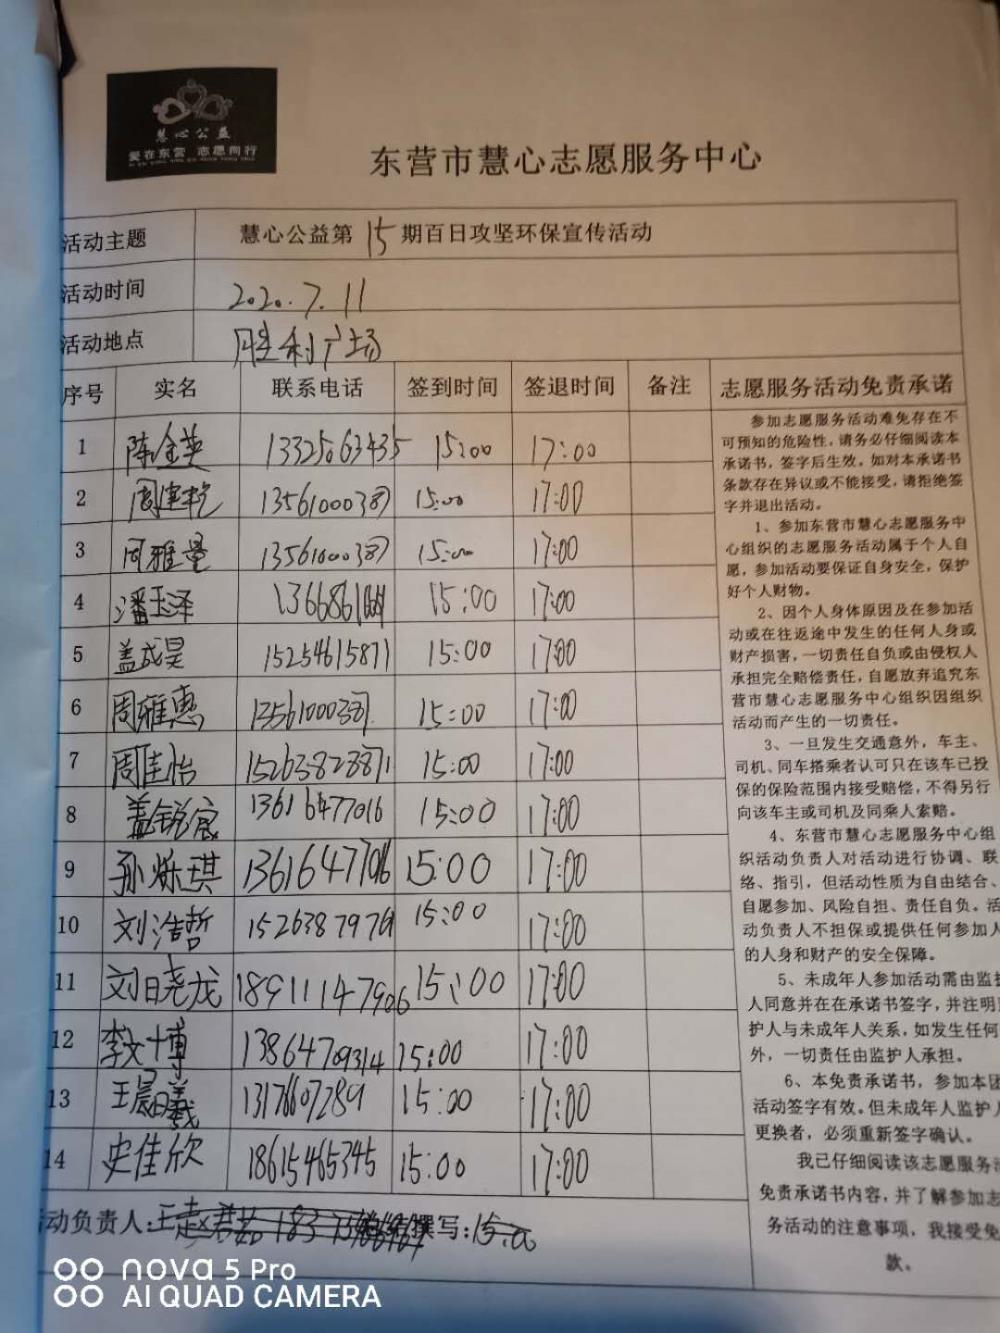 慧心公益
爱在东营 志愿同行
东营市慧心志愿服务中心
活动主题 慧心公益第15期百日攻坚环保宣传活动
活动时间 2020.7.11
活动地点 胜利广场
序号 实名 联系电话 签到时间 签退时间 备注 志愿服务活动免责承诺
1 陈金英 13325063435 15:00 17:00
2 周建乾 15:00 17:00
3 周雅量 15:00 17:00
4 潘玉泽 15:00 17:00
5 盖成昊 15254615871 15:00 17:00
6 周雅惠 15:00 17:00
7 周佳怡 15263823871 15:00 17:00
8 盖锐宸 13616477016 15:00 17:00
9 孙烁琪 13616477016 15:00 17:00
10 刘浩哲 15263879769 15:00 17:00
11 刘日尧龙 18911147906 15:00 17:00
12 李文博 13864709314 15:00 17:00
13 王晨曦 13176607289 15:00 17:00
14 史佳欣 18615465345 15:00 17:00
活动负责人: 撰写:15:00
参加志愿服务活动难免存在不
可预知的危险性,请务必仔细阅读本
承诺书,签字后生效,如对本承诺书
条款存在异议或不能接受,请拒绝签
字并退出活动。
1、参加东营市慧心志愿服务中
心组织的志愿服务活动属于个人自
愿,参加活动要保证自身安全,保护
好个人财物。
2、因个人身体原因及在参加活
动或在往返途中发生的任何人身或
财产损害,一切责任自负或由侵权人
承担完全赔偿责任,自愿放弃追究东
营市慧心志愿服务中心组织因组织
活动而产生的一切责任。
3、一旦发生交通意外,车主、
司机、同车搭乘者认可只在该车已投
保的保险范围内接受赔偿,不得另行
向该车主或司机及同乘人索赔。
4、东营市慧心志愿服务中心组
织活动负责人对活动进行协调、联
络、指引,但活动性质为自由结合、
自愿参加、风险自担、责任自负。活
动负责人不担保或提供任何参加人
的人身和财产的安全保障。
5、未成年人参加活动需由监护
人同意并在在承诺书签字,并注明
护人与未成年人关系,如发生任何
外,一切责任由监护人承担。
6、本免责承诺书,参加本团
活动签字有效。但未成年人监护人
更换者,必须重新签字确认。
我已仔细阅读该志愿服务活
免责承诺书内容,并了解参加志
务活动的注意事项,我接受免
款。
nova 5 Pro
AI QUAD CAMERA